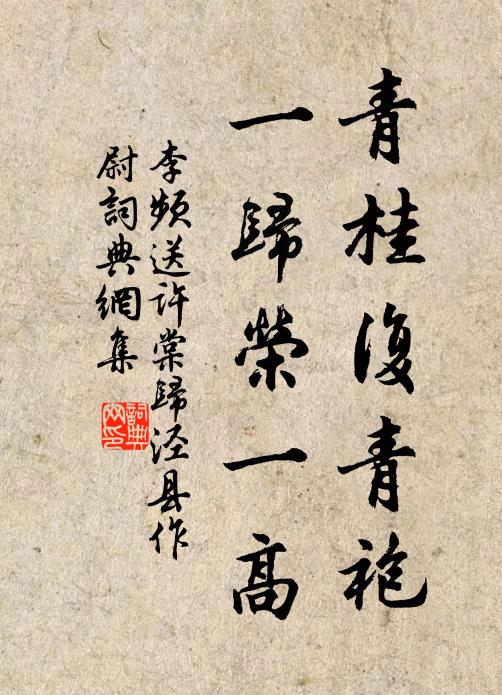 青桂復青袍
一歸榮一高
李頻送許棠歸泾县作
尉詞典網集
詞典
网印